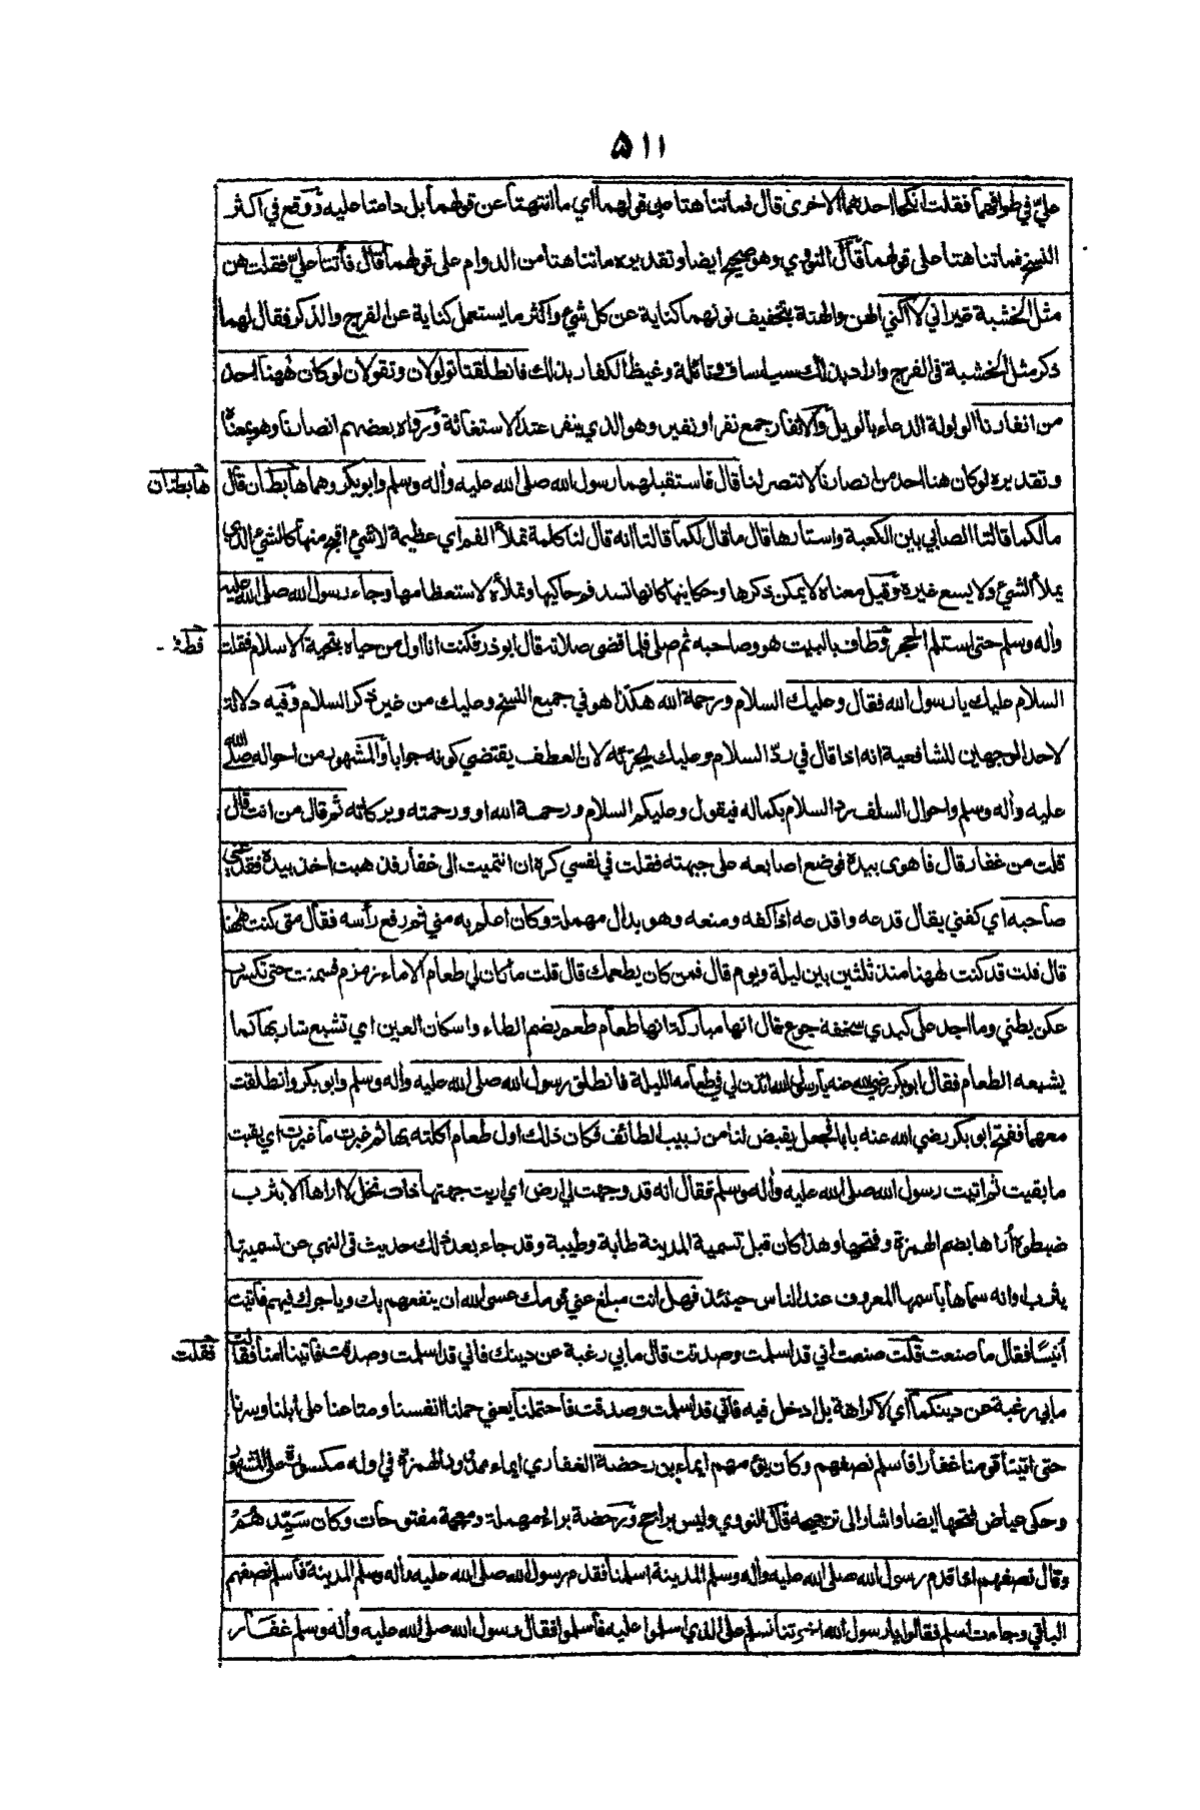 ٥١١
علي في طوافهما فقلت انكحا احدهما الاخرى قال فما تناهتا عن قولهما اي ما انتهتا عن قولهما بل دامتا عليه ووقع في اكثر
النسخ فما تناهتا على قولهما قال النووي وهو صحيح ايضا وتقديره ما تناهتا من الدوام على قولهما قال فأتتا علي فقلت هن
مثل الخشبة غير اني لا اكني الهن والهنة بتخفيف نونهما كناية عن كل شيء واكثر ما يستعمل كناية عن الفرج والذكر فقال لهما
ذكر مثل الخشبة في الفرج واراد بذلك سب اساف ونائلة وغيظ الكفار بذلك فانطلقتا تولولان وتقولان لو كان ههنا احد
من انفارنا الولولة الدعاء بالويل والانفار جمع نفر او نفير وهو الذي ينفر عند الاستغاثة ورواه بعضهم انصارنا وهو بمعناه
وتقديره لو كان هنا احد من انصارنا لانتصر لنا قال فاستقبلهما رسول الله صلى الله عليه وآله وسلم وابو بكر وهما هابطان قال
هابطتان
ما لكما قالتا الصابي بين الكعبة واستارها قال ما قال لكما قالتا انه قال لنا كلمة تملأ الفم اي عظيمة لا شيء اقبح منها كالشيء الذي
يملأ الشيء ولا يسع غيره وقيل معناه لا يمكن ذكرها وحكايتها كانها تسد فم حاكيها وتملأه لاستعظامها وجاء رسول الله صلى الله عليه
وآله وسلم حتى استلم الحجر وطاف بالبيت هو وصاحبه ثم صلى فلما قضى صلاته قال ابو ذر فكنت انا اول من حياه بتحية الاسلام فقلت
السلام عليك يا رسول الله فقال وعليك السلام ورحمة الله هكذا هو في جميع النسخ وعليك من غير ذكر السلام وفيه دلالة
لاحد الوجهين للشافعية انه اذا قال في رد السلام وعليك يجزئه لان العطف يقتضي كونه جوابا والمشهور من احواله صلى الله
عليه وآله وسلم واحوال السلف رد السلام بكماله فيقول وعليكم السلام ورحمة الله او ورحمته وبركاته ثم قال من انت قال
قلت من غفار قال فاهوى بيده فوضع اصابعه على جبهته فقلت في نفسي كره ان انتميت الى غفار فذهبت اخذ بيده فقدعني
صاحبه اي كفني يقال قدعه واقدعه اذا كفه ومنعه وهو بدال مهملة وكان اعلم به مني ثم رفع رأسه فقال متى كنت ههنا
قال قلت قد كنت ههنا منذ ثلثين بين ليلة ويوم قال فمن كان يطعمك قال قلت ما كان لي طعام الا ماء زمزم فسمنت حتى تكسرت
عكن بطني وما اجد على كبدي سخفة جوع قال انها مباركة انها طعام طعم بضم الطاء واسكان العين اي تشبع شاربها كما
يشبعه الطعام فقال ابو بكر رضي الله عنه يا رسول الله ائذن لي في طعامه الليلة فانطلق رسول الله صلى الله عليه وآله وسلم وابو بكر وانطلقت
معهما ففتح ابو بكر رضي الله عنه بابا فجعل يقبض لنا من زبيب الطائف فكان ذلك اول طعام اكلته بها ثم غبرت ما غبرت اي بقيت
ما بقيت ثم اتيت رسول الله صلى الله عليه وآله وسلم فقال انه قد وجهت لي ارض اي اريت جهتها ذات نخل لا اراها الا يثرب
ضبطوه أراها بضم الهمزة وفتحها وهذا كان قبل تسمية المدينة طابة وطيبة وقد جاء بعد ذلك حديث في النهي عن تسميتها
يثرب او انه سماها باسمها المعروف عند الناس حينئذ فهل انت مبلغ عني قومك عسى الله ان ينفعهم بك وياجرك فيهم فأتيت
أنيسا فقال ما صنعت قلت صنعت اني قد اسلمت وصدقت قال ما بي رغبة عن دينك فاني قد اسلمت وصدقت فأتينا امنا فقالت
فقلت
ما بي رغبة عن دينكما اي لا كراهة بل ادخل فيه فاني قد اسلمت وصدقت فاحتملنا يعني حملنا انفسنا ومتاعنا على ابلنا وسرنا
حتى اتينا قومنا غفارا فاسلم نصفهم وكان يؤمهم ايماء بن رحضة الغفاري ايماء ممدود والهمزة في اوله مكسورة على المشهور
وحكى عياض فتحها ايضا واشار الى ترجيحه قال النووي وليس براجح ورحضة براء مهملة ومعجمة مفتوحات وكان سيدهم
وقال نصفهم اذا قدم رسول الله صلى الله عليه وآله وسلم المدينة اسلمنا فقدم رسول الله صلى الله عليه وآله وسلم المدينة فأسلم نصفهم
الباقي وجاءت اسلم فقالوا يا رسول الله اخوتنا نسلم على الذي اسلموا عليه فأسلموا فقال رسول الله صلى الله عليه وآله وسلم غفار